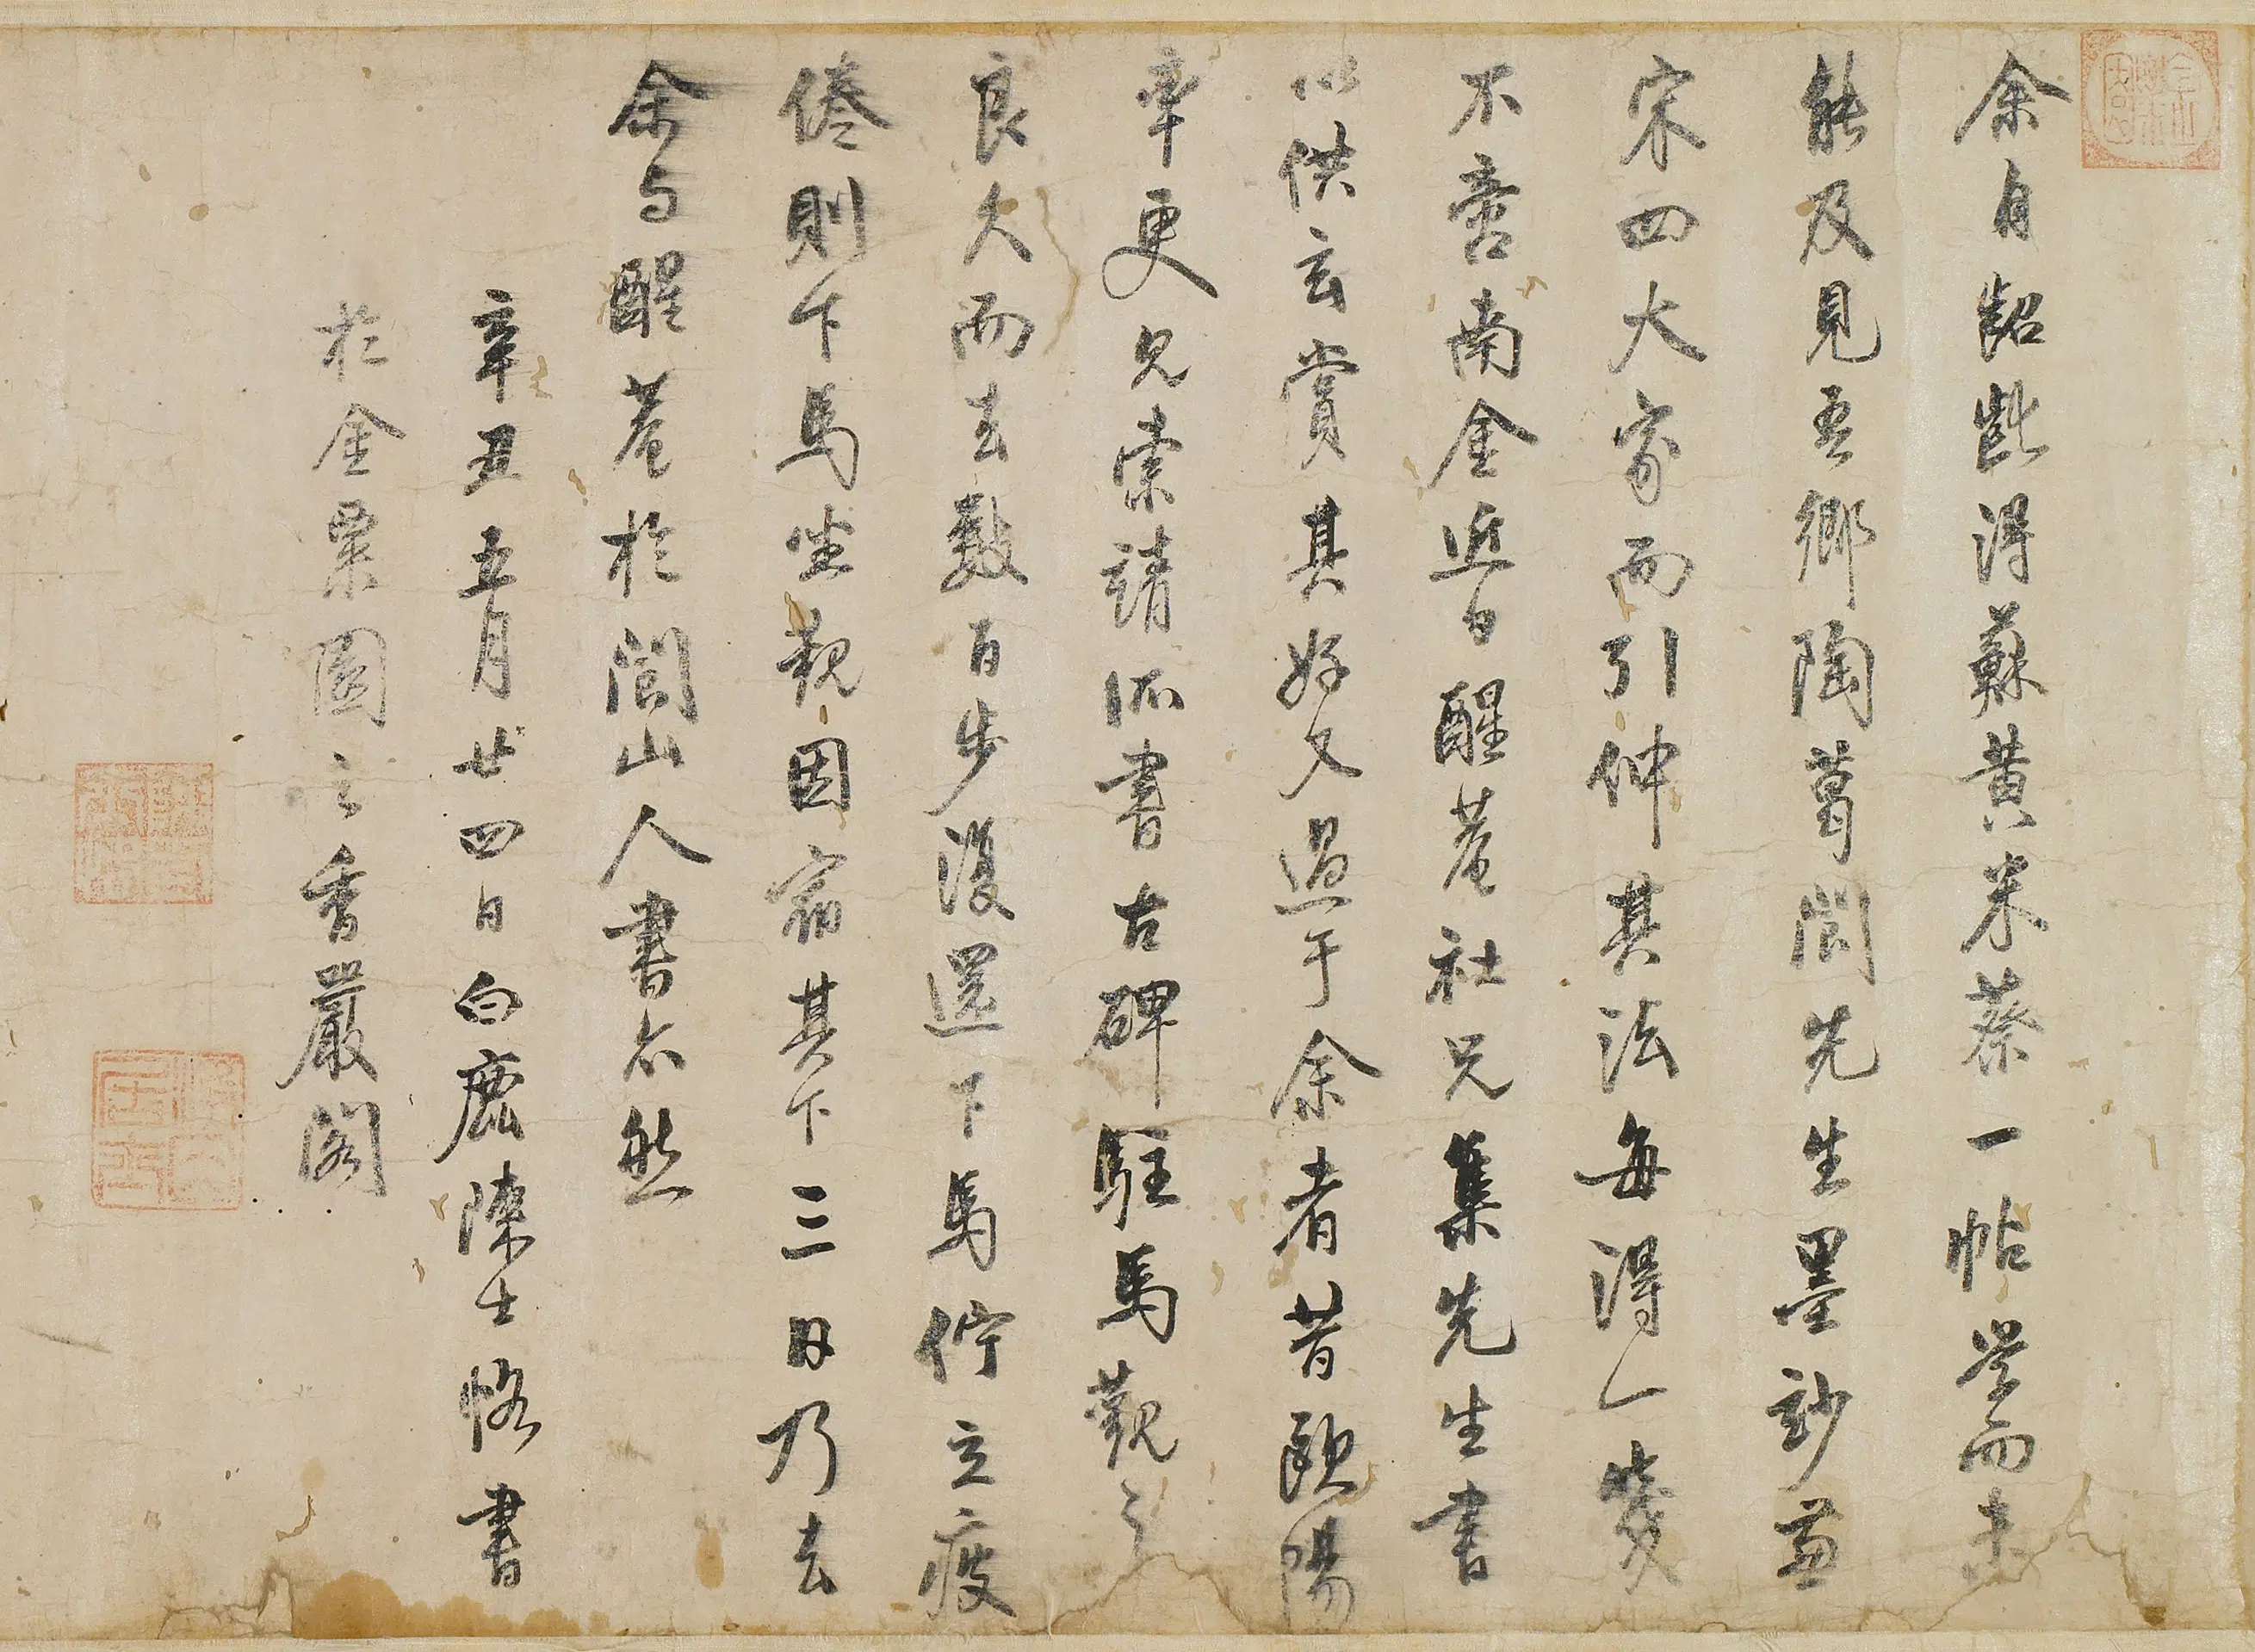 余自齠齔得蘇黃米蔡一帖学而未
能及見吾鄉陶葛閬先生墨妙蓋
宋四大家而引伸其法每得一箋
不啻南金近日醒菴社兄集先生書
以供玄賞其好又過于余者昔歐陽
率更見索靖所書古碑駐馬觀之
良久而去數百步復還下馬佇立疲
倦則下馬坐觀因宿其下三日乃去
余与醒菴於閬山人書亦然
辛丑五月廿四日白鹿陳士恪書
於金粟園之香嚴閣